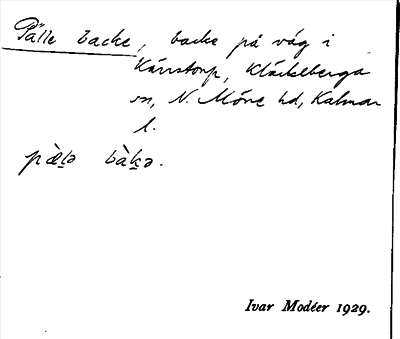 Pälle backe, backe på väg i
Kärrstorp, Kläckeberga
sn, N. Möre hd, Kalmar
l.
pæ̀lə bàkə.
Ivar Modéer 1929.